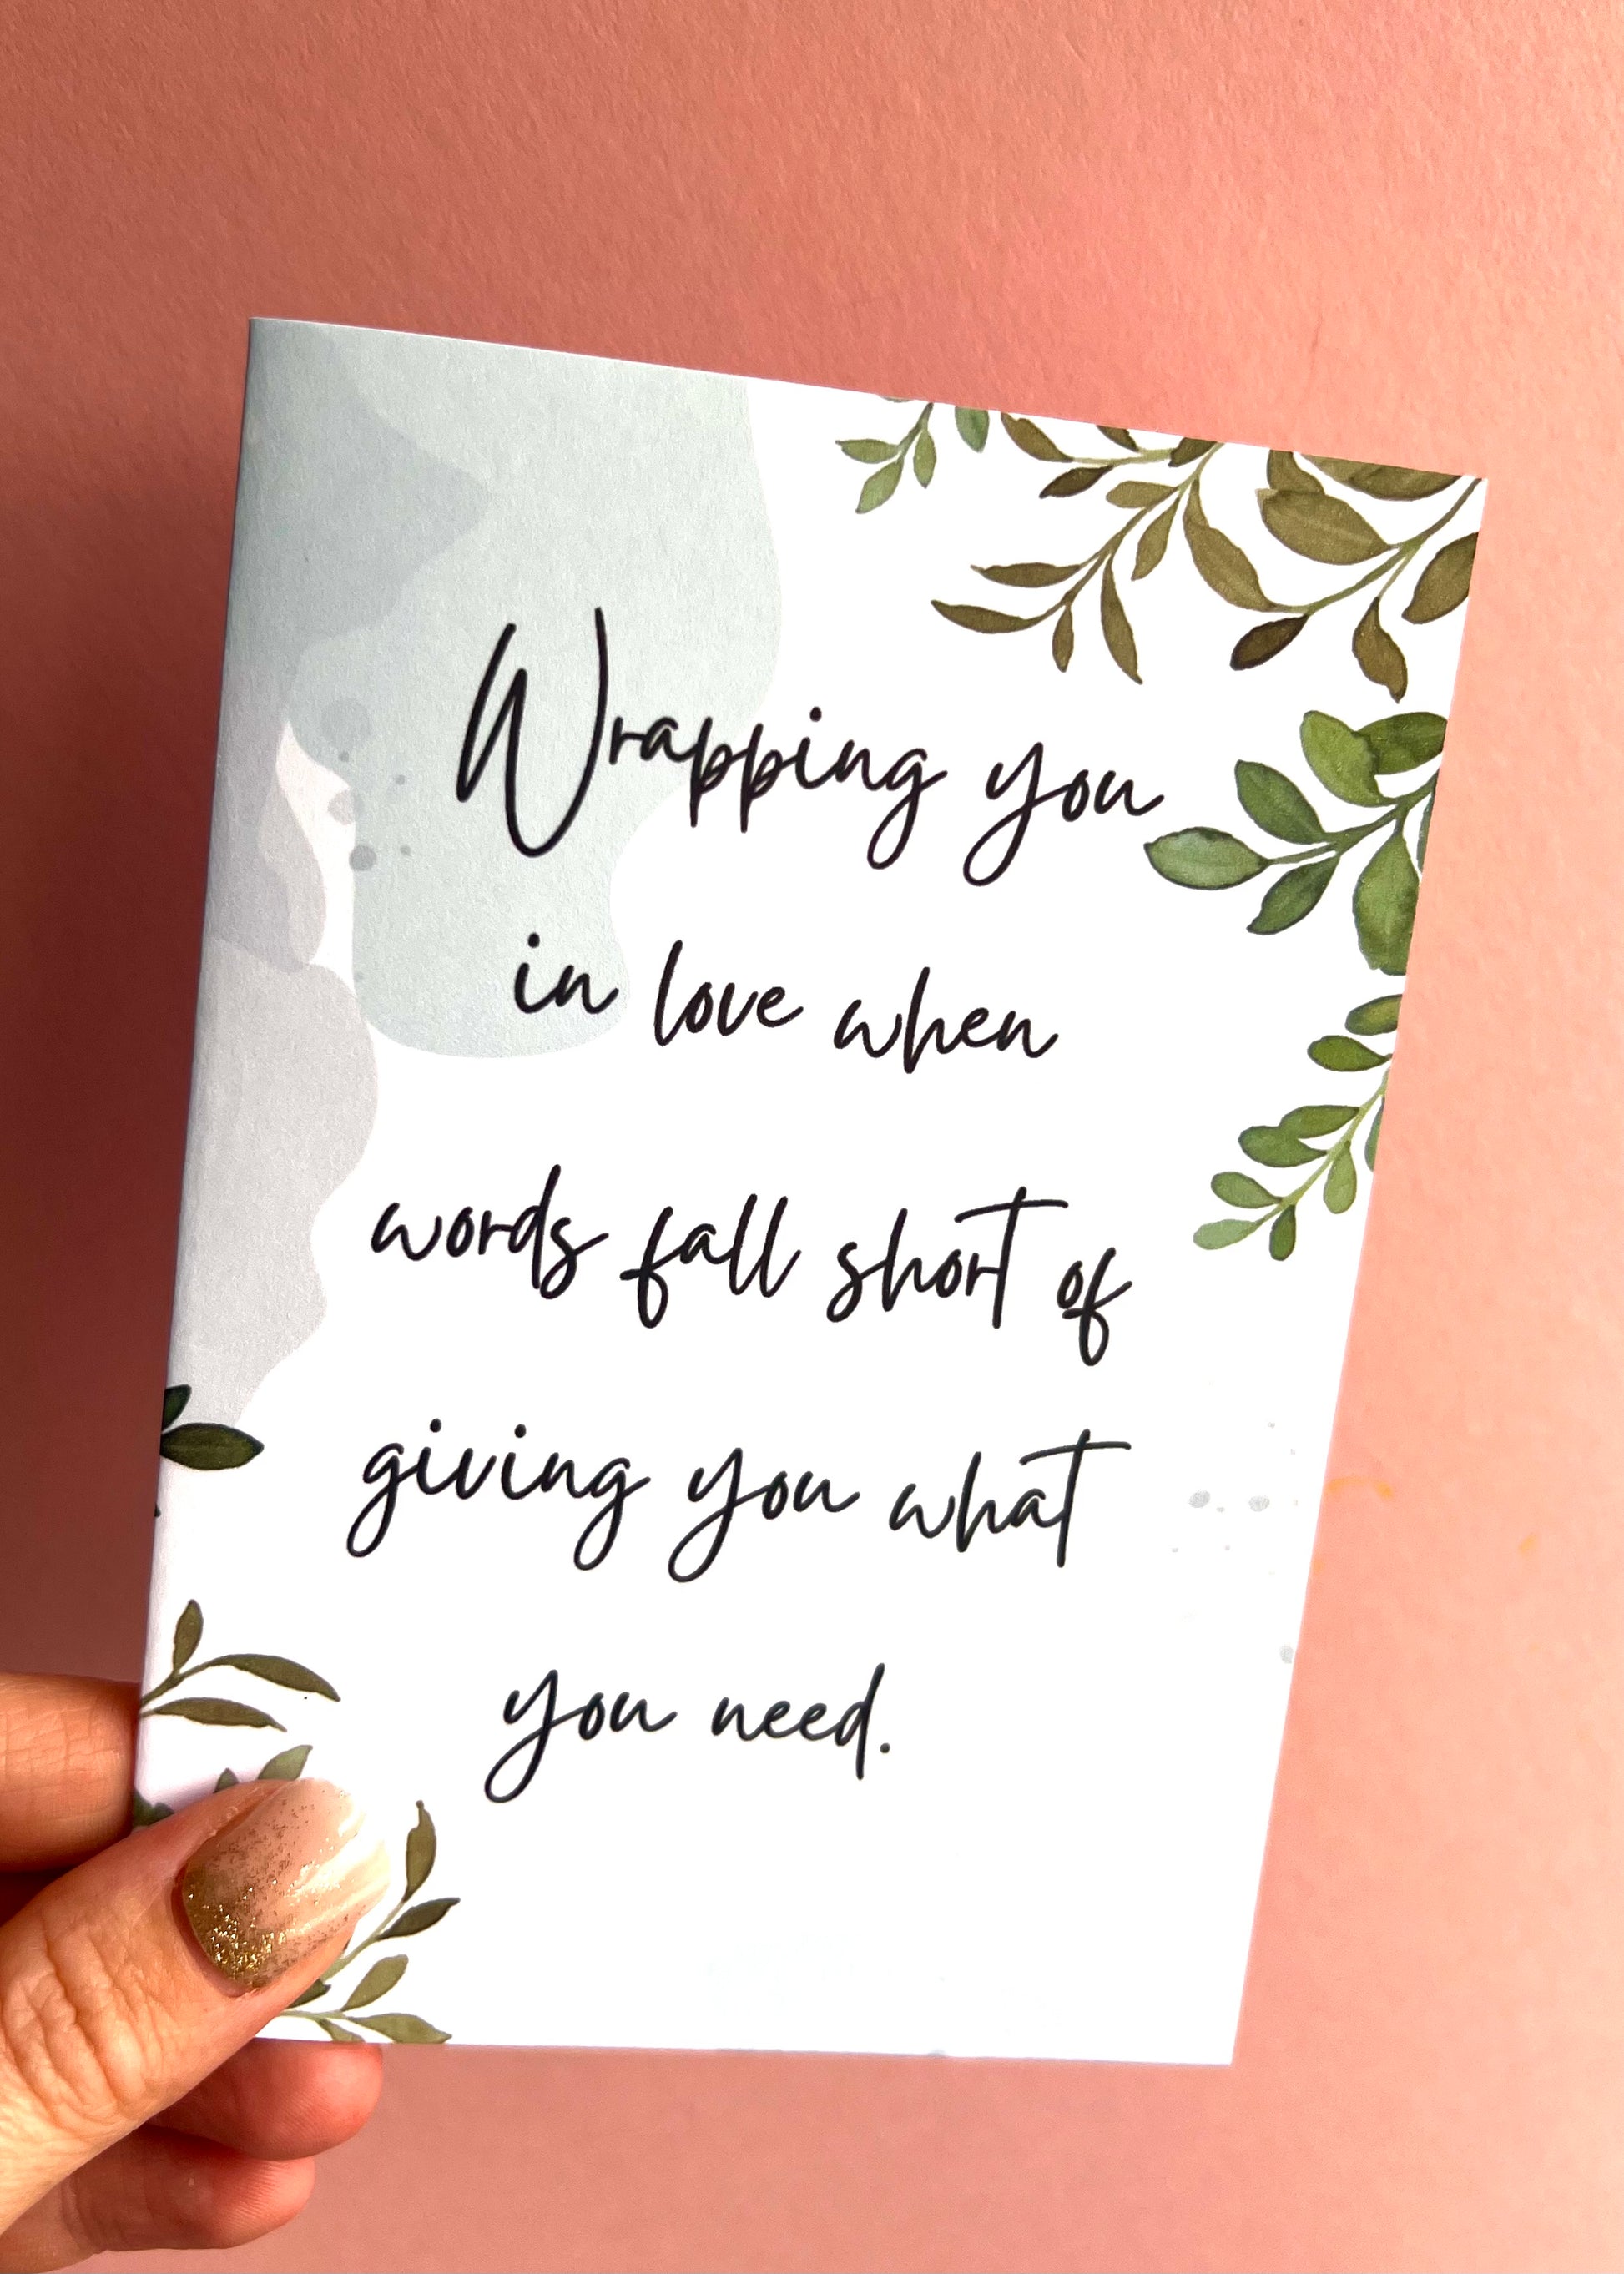 Wrapping you
in love when
words fall short of
giving you what
you need.